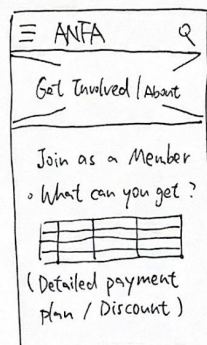 ANFA
Get Involved / About
Join as a Member
What can you get ?
( Detailed payment
plan / Discount )